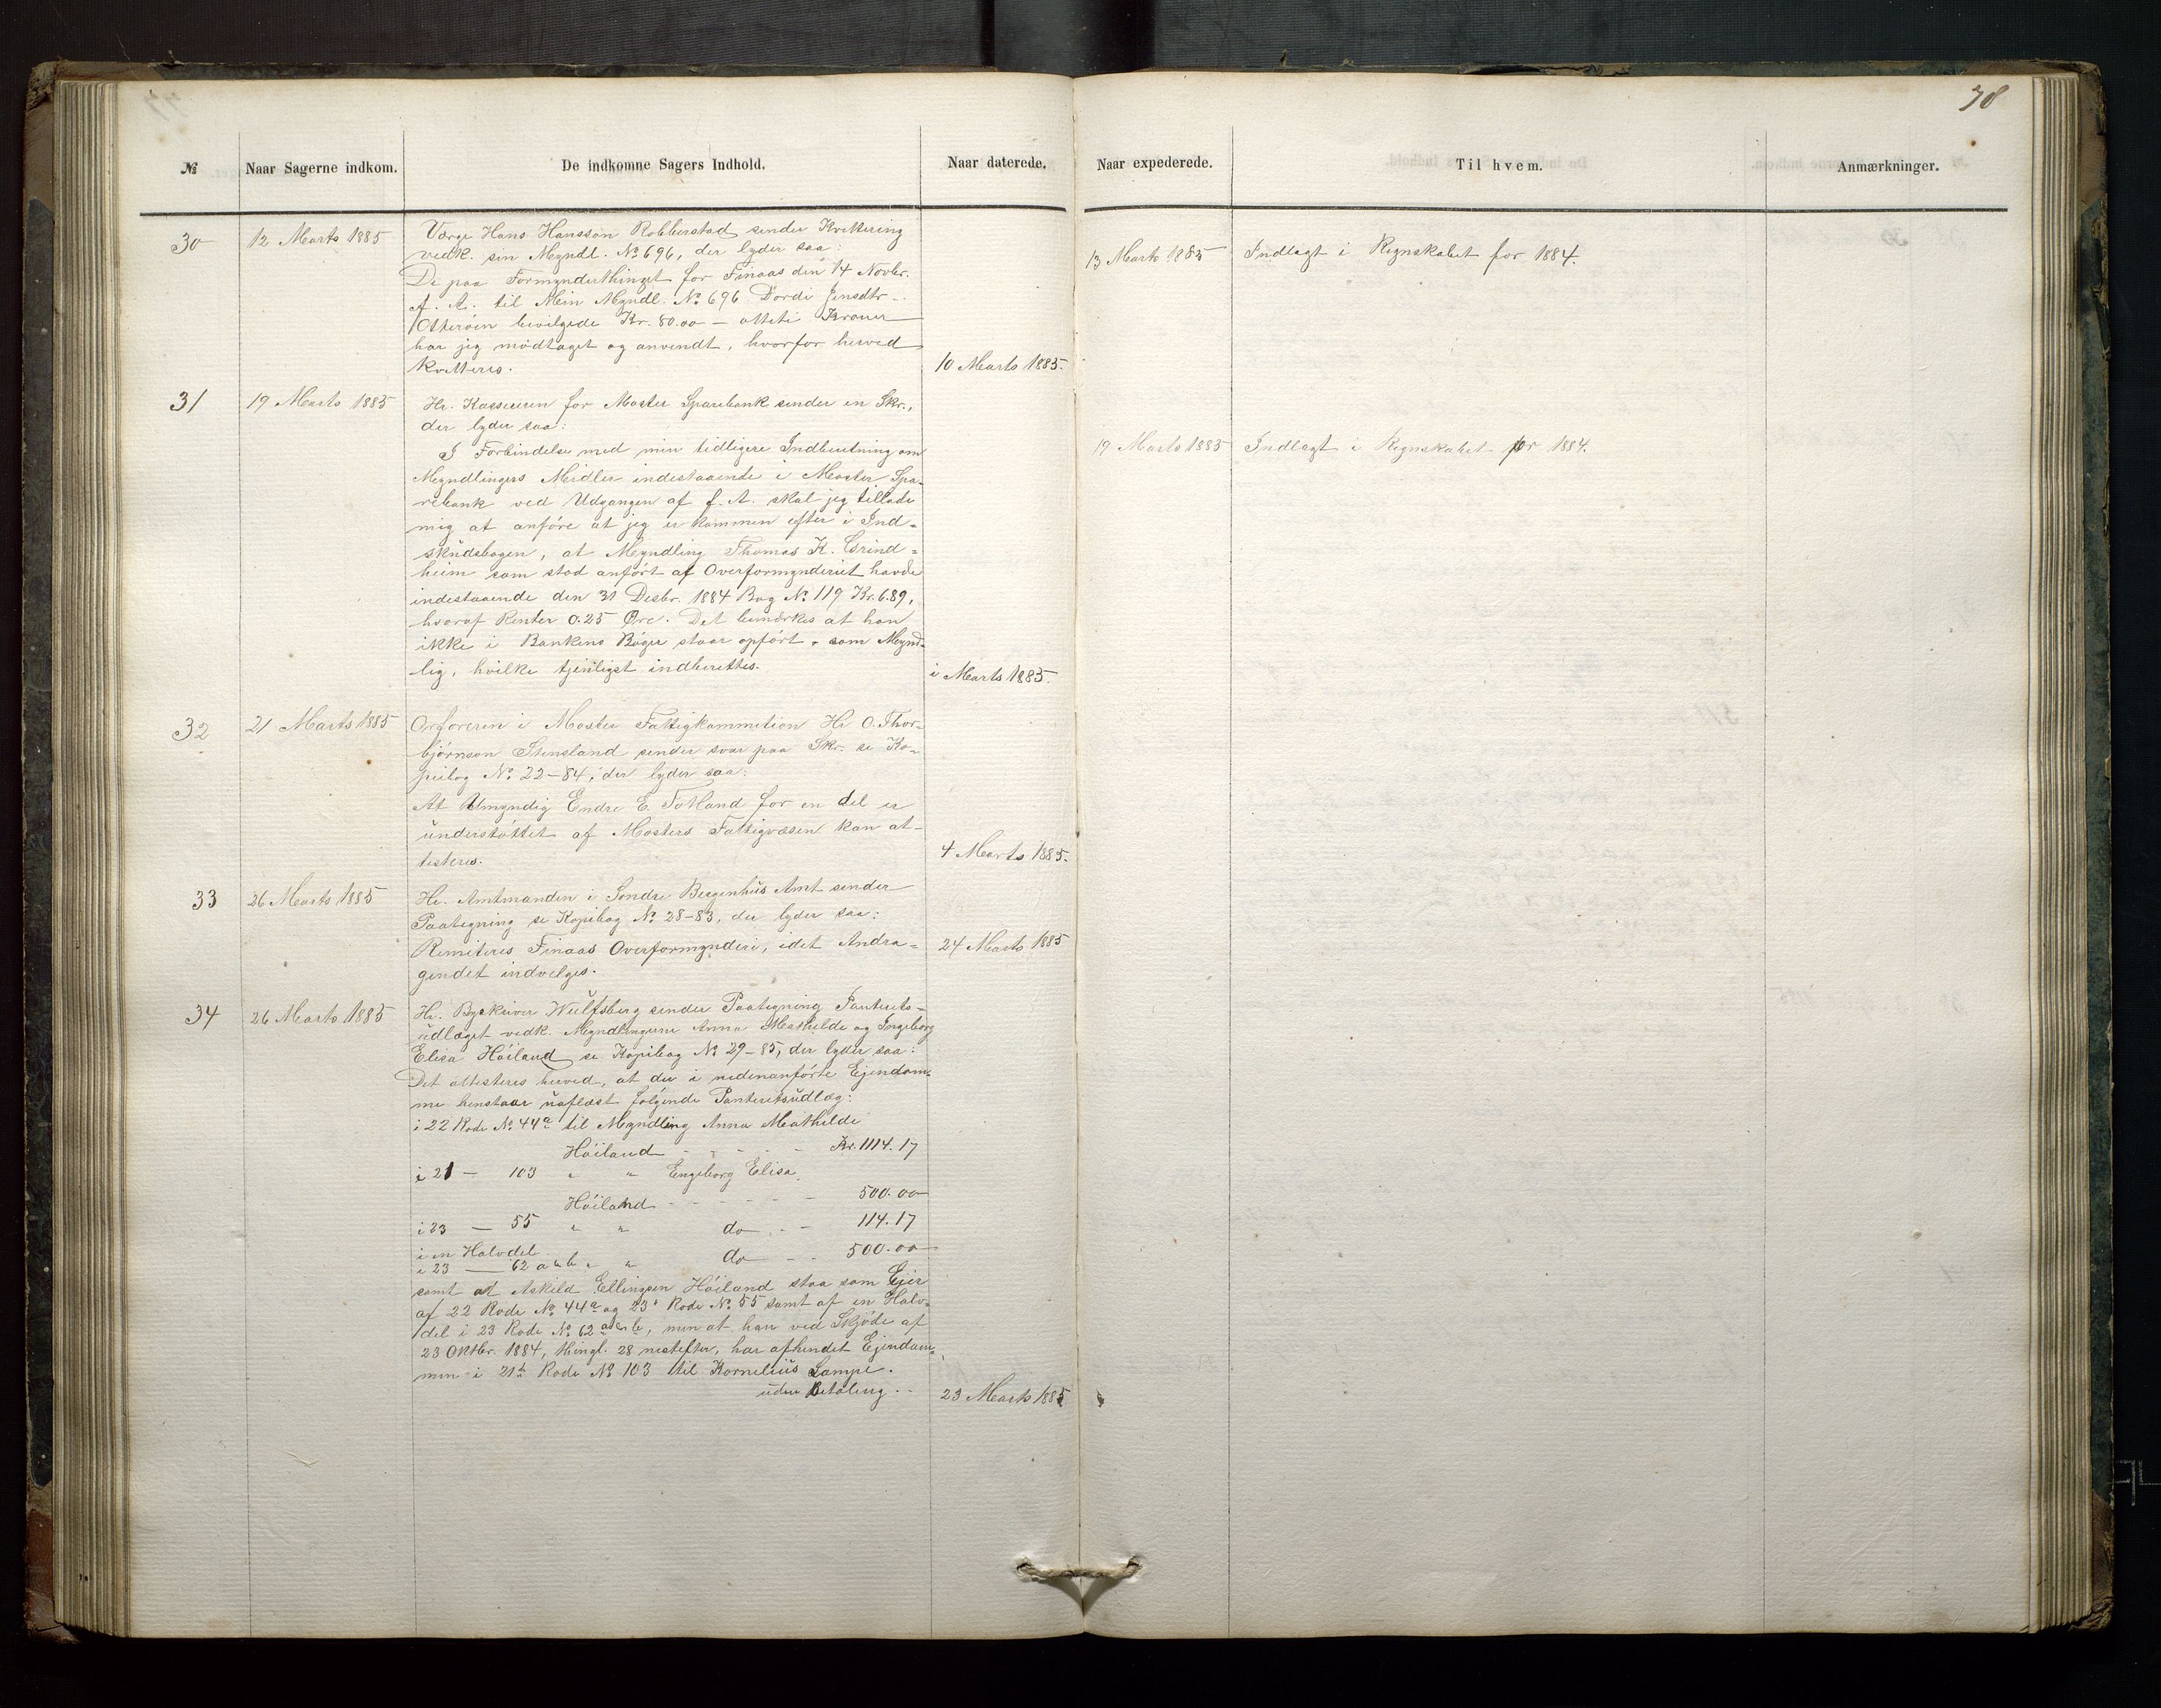 78
№ Naar Sagerne indkom. De indkomne Sagers Indhold. Naar daterede. Naar expederede. Til hvem. Anmærkninger.
30 12 Marts 1885 Værge Hans Hansson Robberstad sender Kvittering
vedk. sin Myndl. No 696, der lyder saa:
De paa Formynderthinget for Finaas den 14 Novbr.
f. A. til Min Myndl. No 696 Dordi Jensdtr
Otteröen bevilgede Kr. 80.00 – otteti Kroner
har jeg modtaget og anvendt, hvorfor herved
kvitteres. 10 Marts 1885.
13 Marts 1885 Indlagt i Regnskabet for 1884.
31 19 Marts 1885 Hr. Kassereren for Moster Sparebank sender en Skr.,
der lyder saa:
I Forbindelse med min tidligere Indberetning om
Myndlingers Midler indestaaende i Moster Spa-
rebank ved Udgangen af f. A. skal jeg tillade
mig at anföre at jeg er kommen efter i Ind-
skudsbogen, at Myndling Thomas K. Grind-
heim som stod anfört af Overformynderiet havde
indestaaende den 31 Desbr. 1884 Bog No 119 Kr. 6.89,
hvoraf Renter 0.25 Öre. Det bemærkes at han
ikke i Bankens Böger staar opfört som Mynd-
lig, hvilke tjenligst indberettes. i Marts 1885.
19 Marts 1885 Indlagt i Regnskabet for 1884.
32 21 Marts 1885 Orföreren i Moster Fattigkommition Hr O. Thor-
björnson Stensland sender svar paa Skr. se Ko-
peibog No 22–84, der lyder saa:
At Umyndig Endre E. Totland for en del er
understöttet af Mosters Fattigvæsen kan at-
testeres. 4 Marts 1885.
33 26 Marts 1885 Hr. Amtmanden i Söndre Bergenhus Amt sender
Paategning se Kopibog No 28–83, der lyder saa:
Remiteres Finaas Overformynderi, idet Andra-
gendet indvelges. 24 Marts 1885
34 26 Marts 1885 Hr. Byskriver Wulfsberg sender Paategning Panterets-
udlæget vedk. Myndlingerne Anna Mathilde og Ingeborg
Elisa Höiland se Kopibog No 29–85, der lyder saa:
Det attesteres herved, at der i nedenanförte Ejendom-
me henstaar uaflæst fölgende Panteretsudlæg:
i 22 Rode No 44a til Myndling Anna Mathilde
Höiland - - - - Kr. 1114.17
i 21 – 103 " " Engeborg Elisa
Höiland - - - - - 500.00
i 23 – 55 " " do - - 114.17
i en Halvdel
i 23 – 62 a & b " " do - - 500.00
samt at Askild Ellingsen Höiland staa som Ejer
af 22 Rode No 44a og 23' Rode No 55 samt af en Halv-
del i 23 Rode No 62 a & b, men at han ved Skjöde af
23 Oktbr. 1884, thingl. 28 nestefter, har afhendet Ejendom-
men i 21de Rode No 103 til Kornelius Lampe.
uden Betaling. 23 Marts 1885